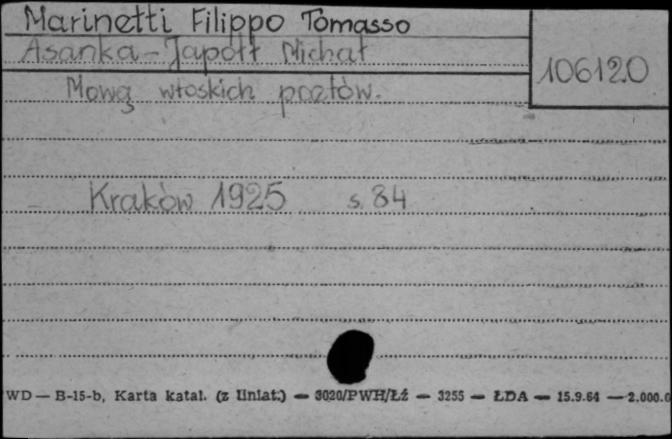 Marinetti Filippo Tomasso
Asanka-Japołł Michał
106120
Mową włoskich poetów.
Kraków 1925 s. 84
WD — B-15-b, Karta katal. (z liniat.) — 3020/PWH/Łź — 3255 — ŁDA — 15.9.64 — 2.000.0